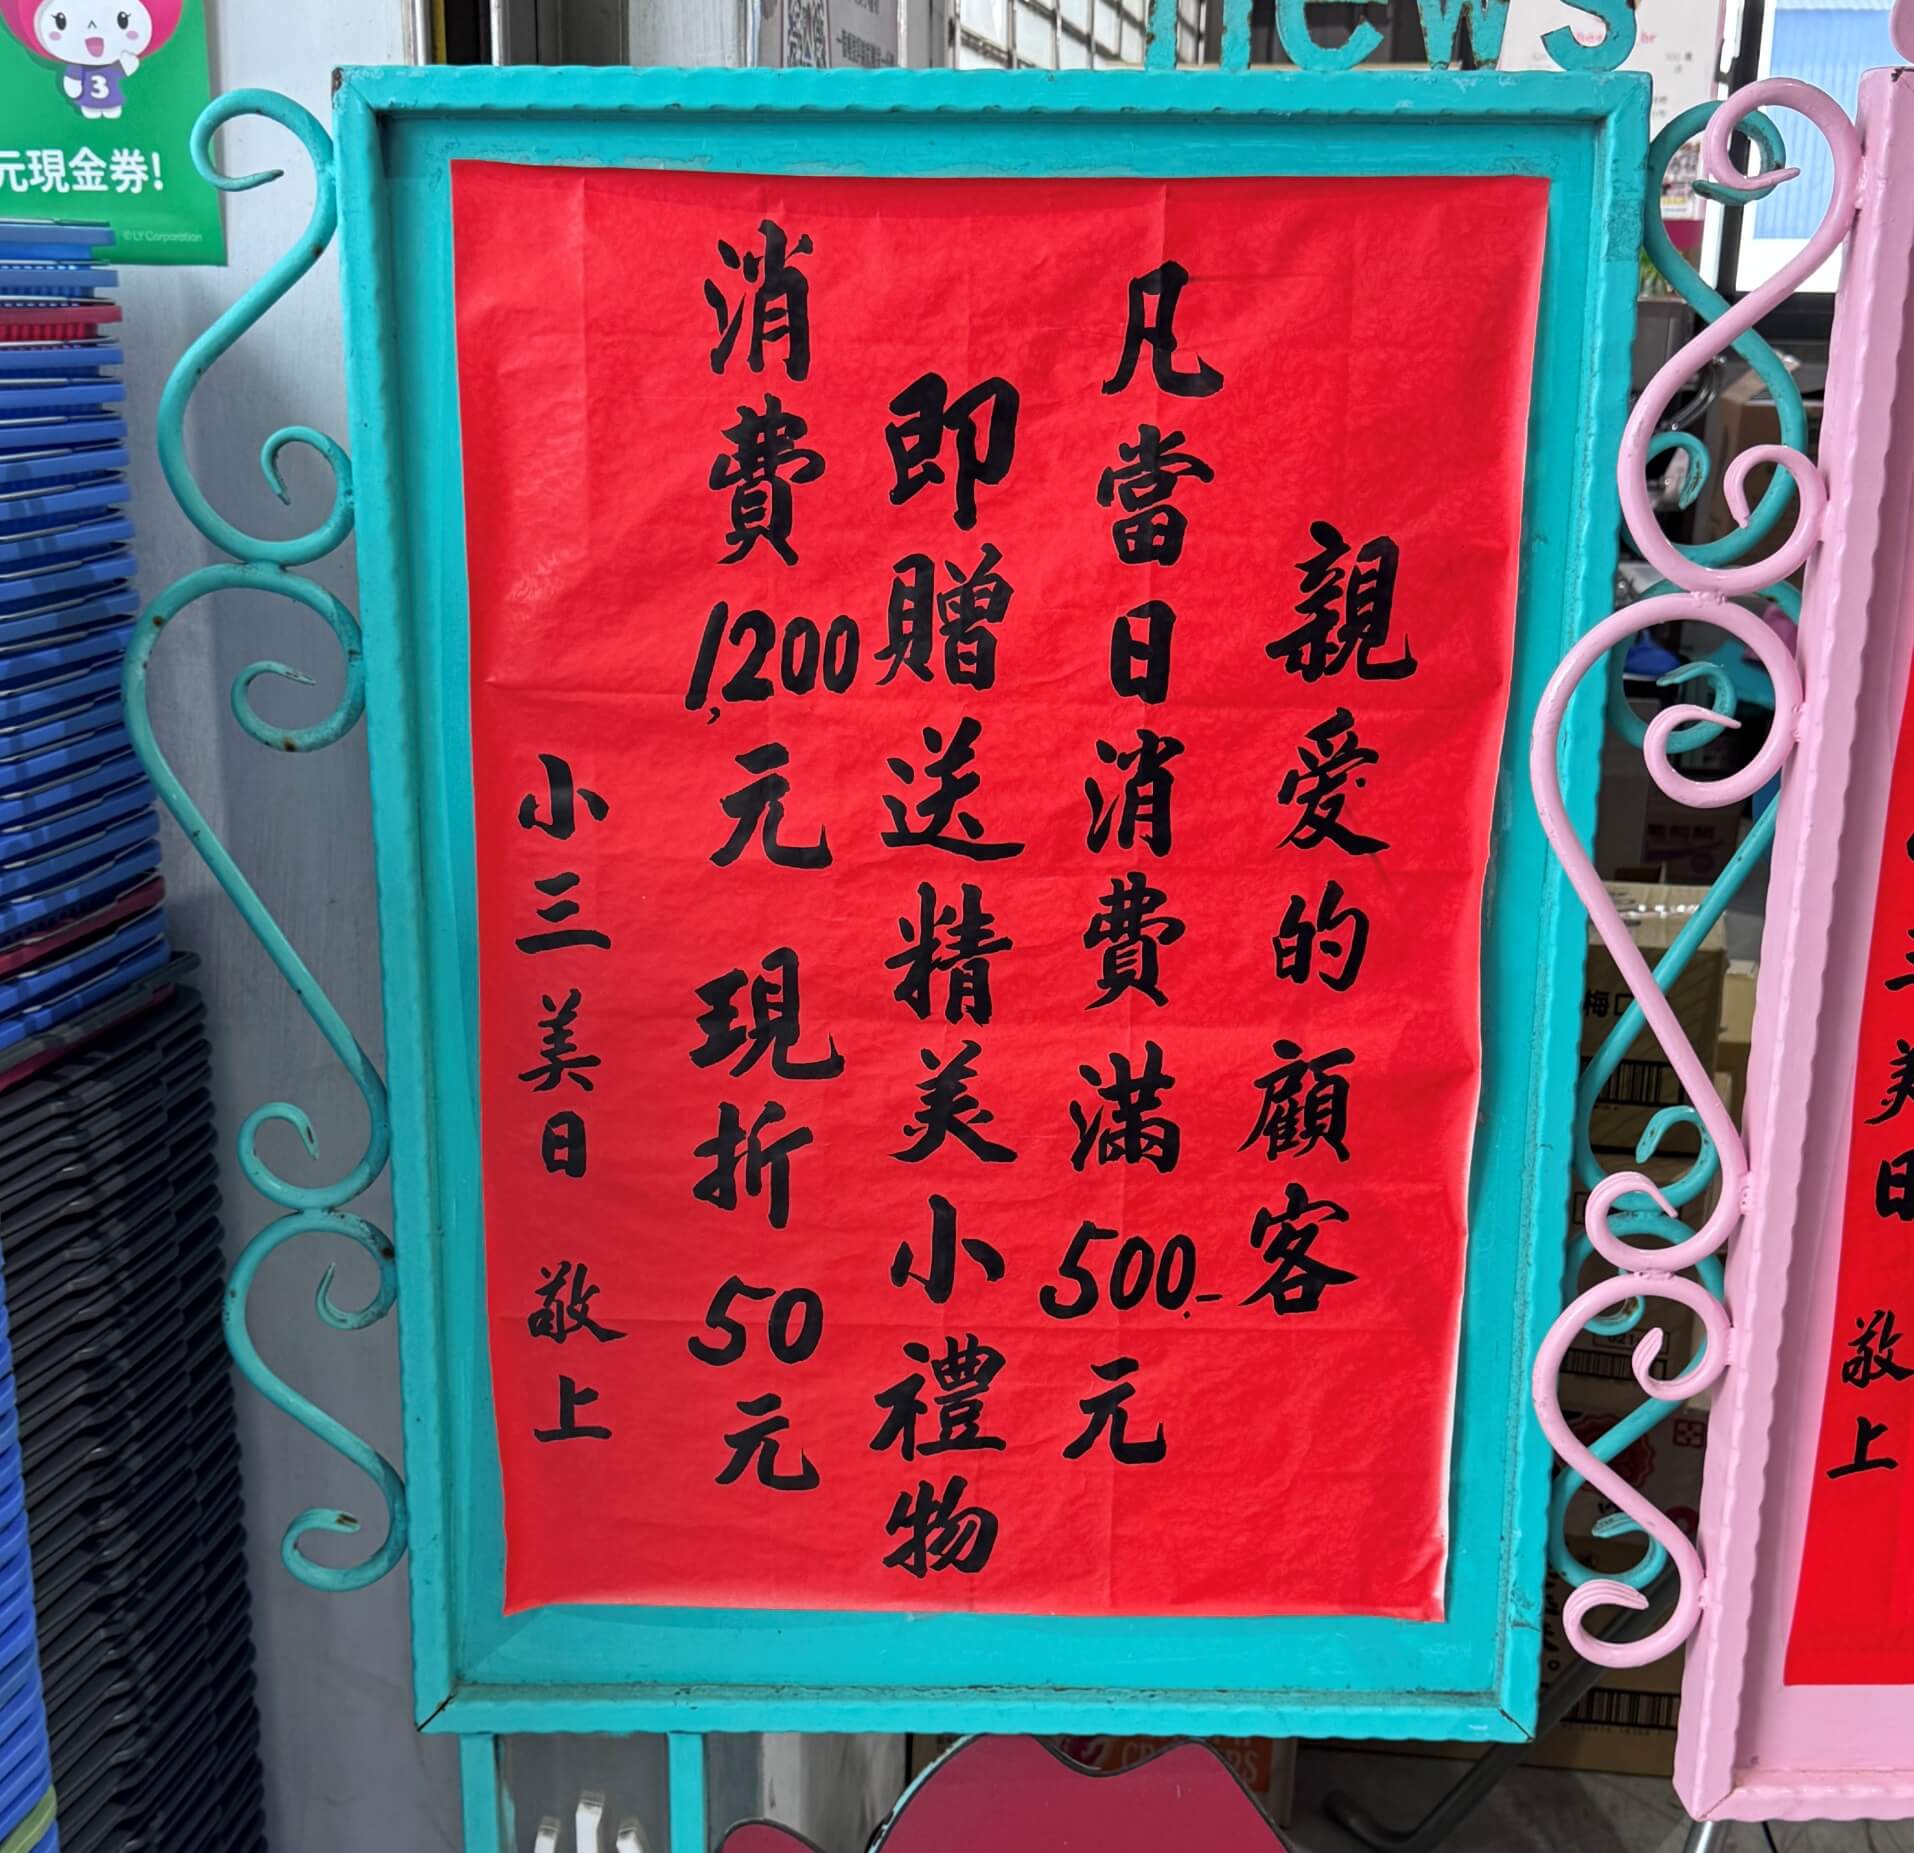 親愛的顧客
凡當日消費滿500.-元
即贈送精美小禮物
消費1,200元 現折50元
小三美日 敬上
news
元現金券!
©LY Corporation
3
美日 敬上